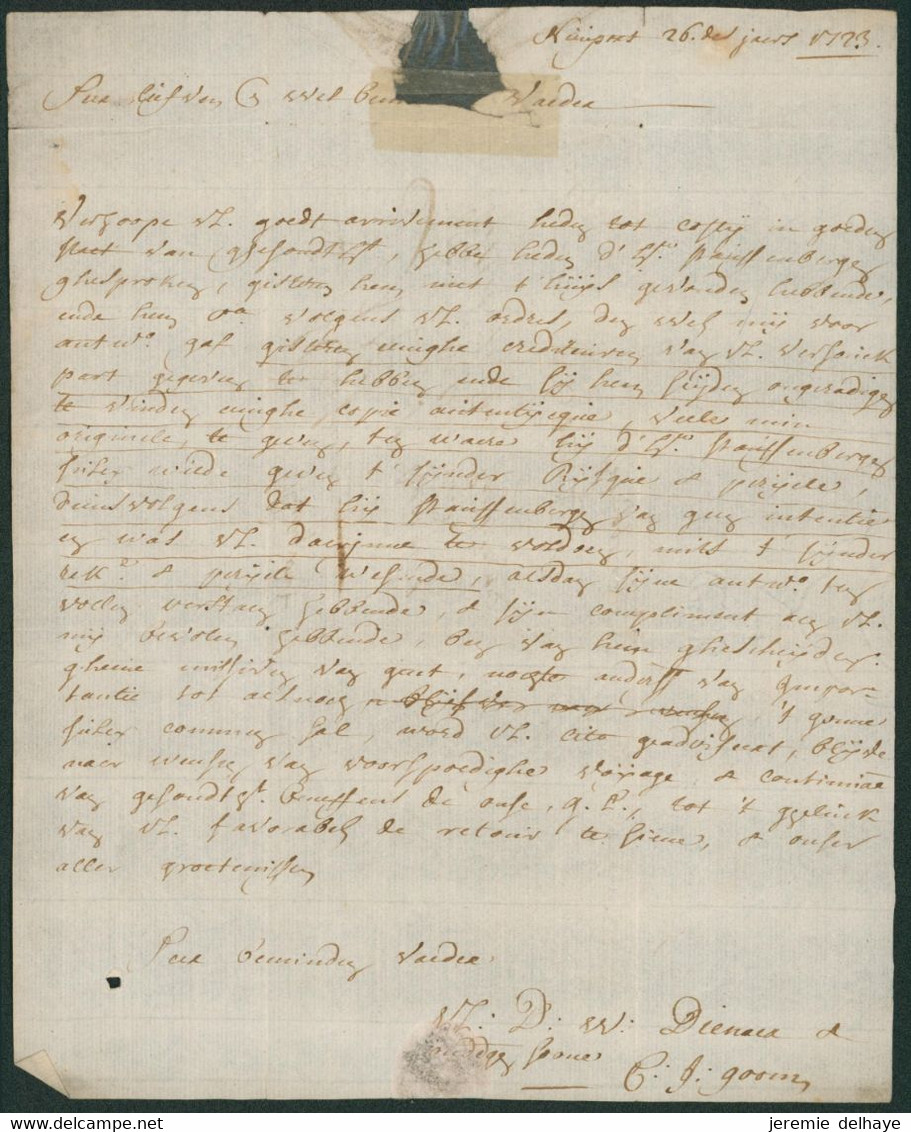 Nieuport 26. des jaers 1723.
Seer lieven & wel bem Vaeder
Verhoope UL. goedt arrivement heden tot in goeden
staet van ghesondtheyt, hebbe heden d'hr. Stauffenbergen
ghesproken, gisteren hem niet t'huys gevonden hebbende,
ende hem volgens UL. ordres, den welcken mij voor
antwe. gaf gisteren eenighe crediteuren van UL. versouck
part gegeven te hebben ende sij hem seyden ongeraedigh
te vinden eenighe copie autenticque, veele min
originele, te geven, ten waere hij d'hr. Stauffenbergen
sulcx wilde geven t' sijnder Risique & perijcle,
dienvolgens dat hij Stauffenbergen van geen intentie
en was UL. daerinne te voldoen, mits t' sijnder
rek. & perijcle wesende, alsdan sijne antwe. ten
vollen verstaen hebbende, & sijn compliment aen UL.
mij bevolen hebbende, ben van hem ghescheyden.
gheene missiven van gent, nochte anders van impor-
tantie tot alnoch 't gonne
sulcx commen sal, word UL. cito geadviseert, blijve
naer wensch van voorspoedighe voijage & continuae
van gesondtht. beneffens de onse, tot 't geluck
van UL. favorabel de retour te siene, & onser
aller groetenissen
Seer beminden Vaeder
UL: D: W: Dienaer &
soone
C: J: goom
jeremie delhaye